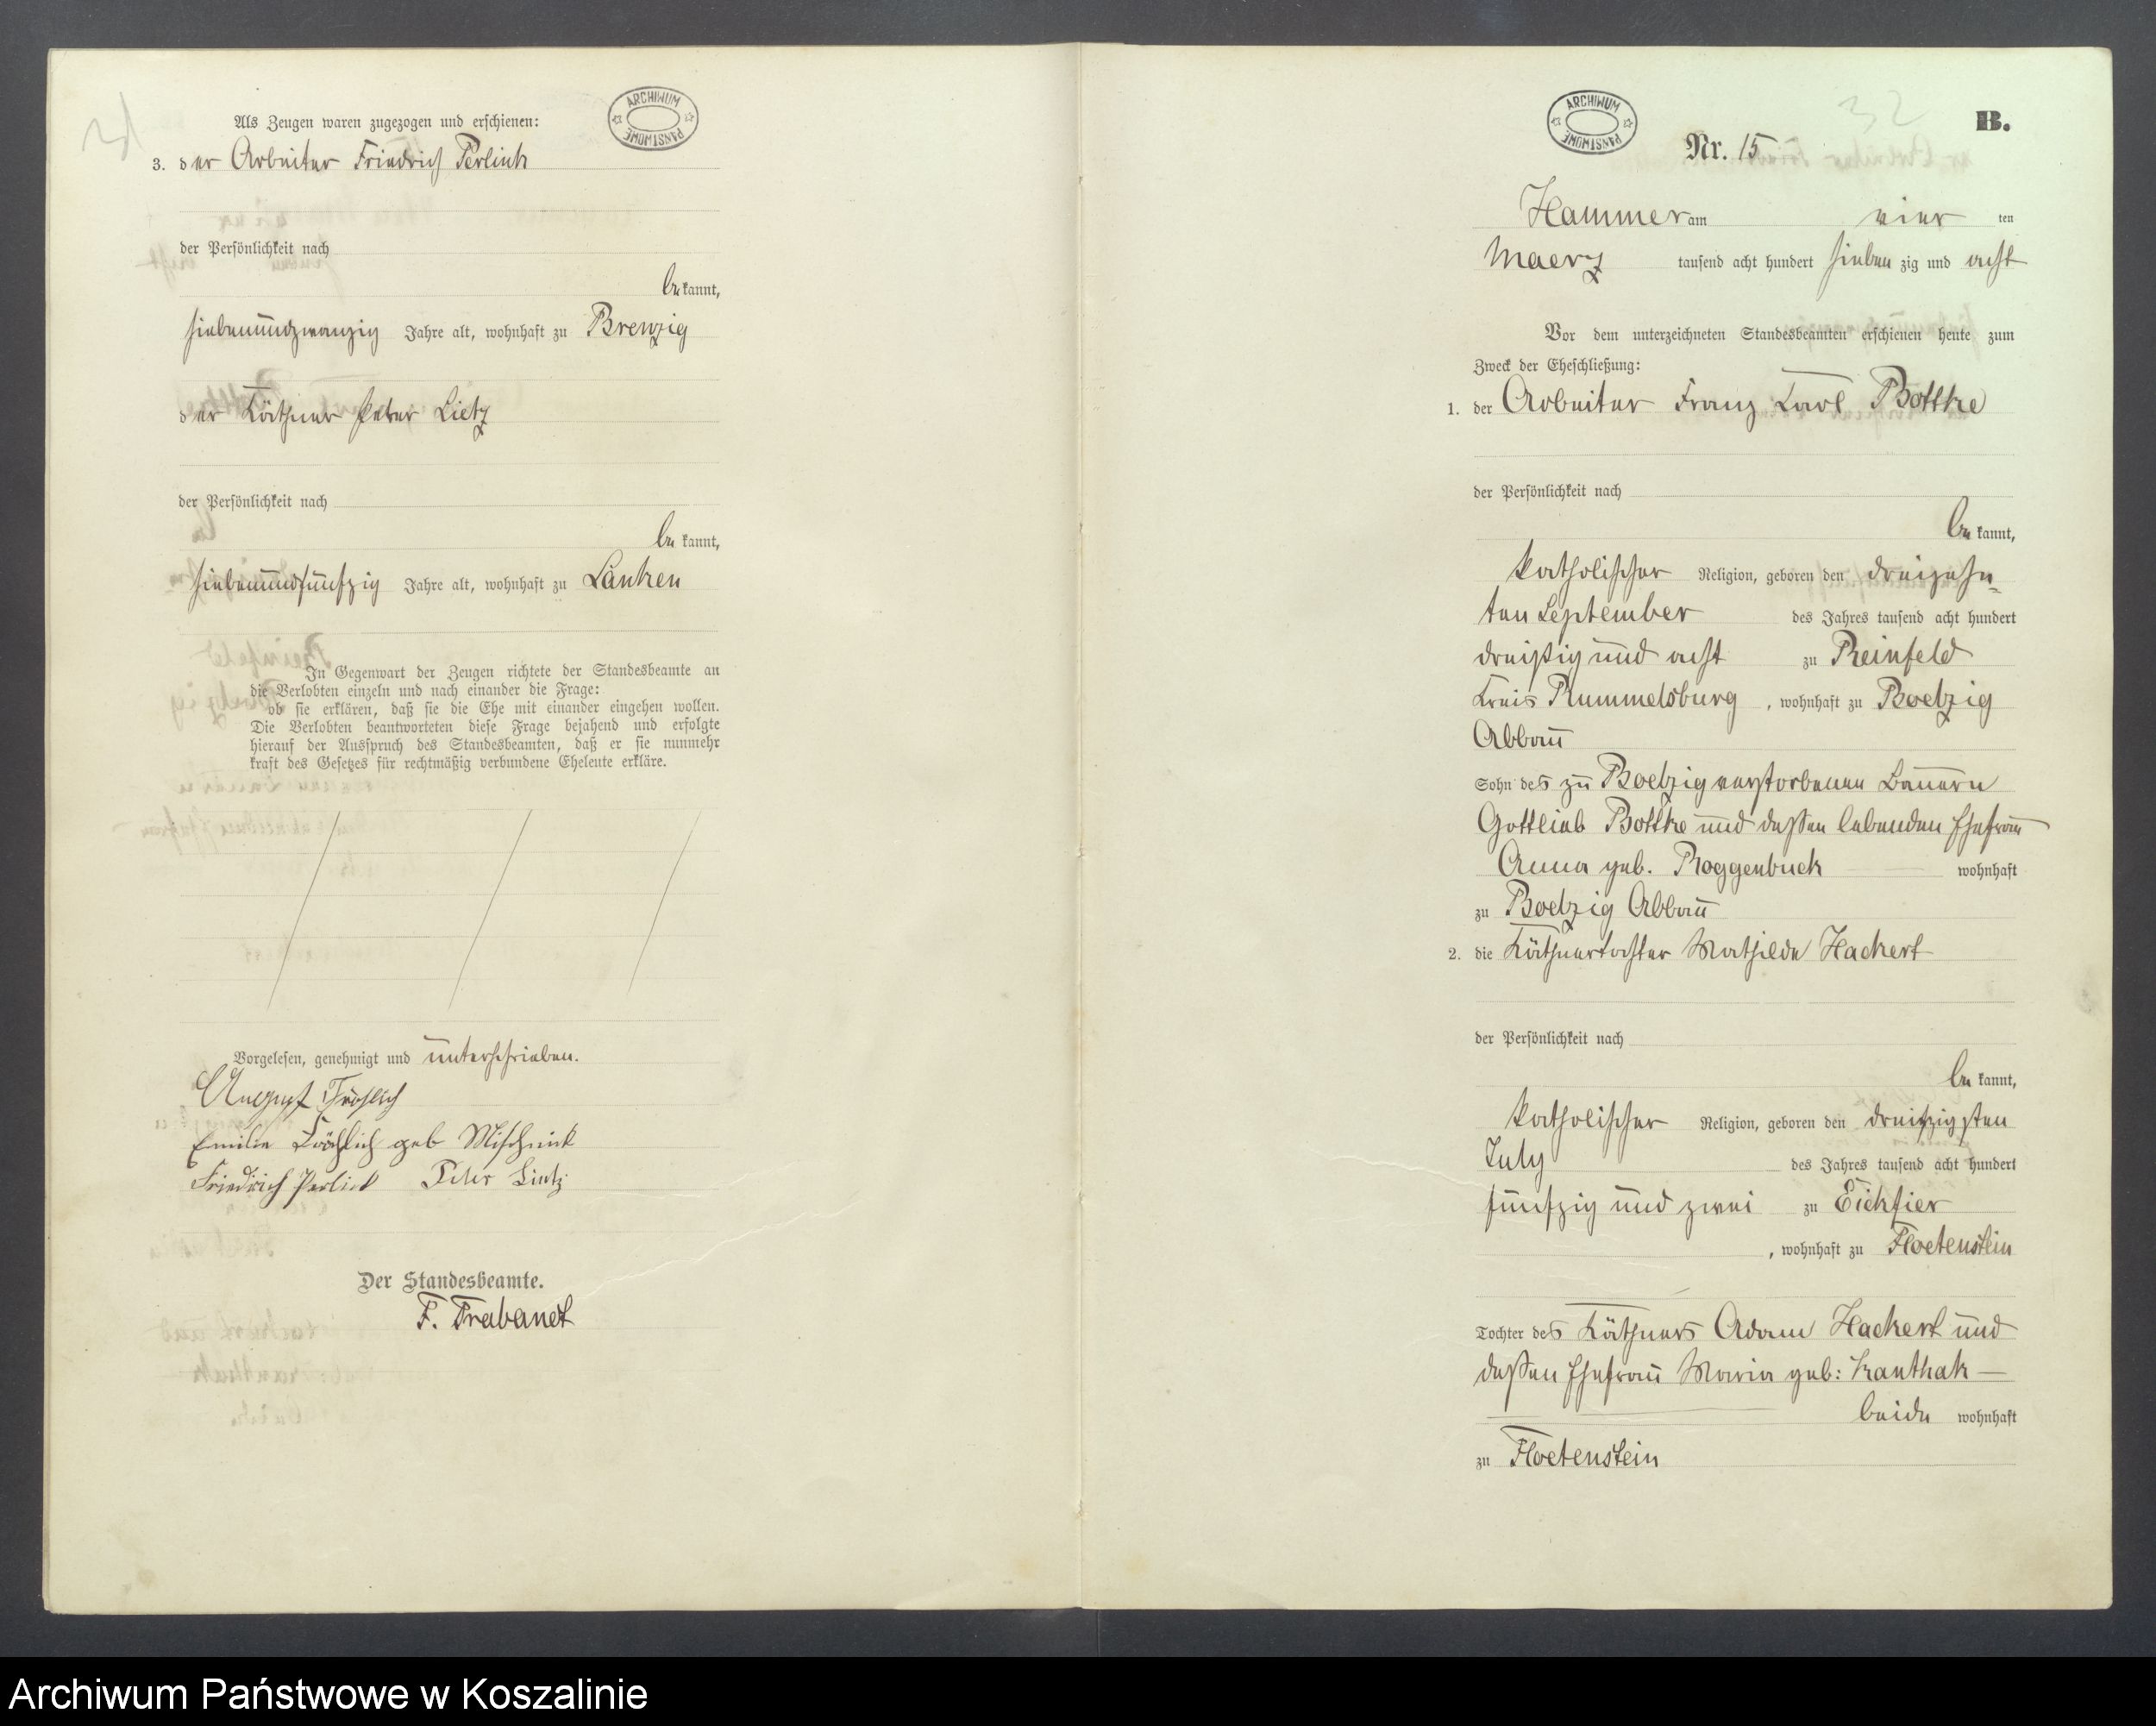 Als Zeugen waren zugezogen und erschienen:
ARCHIWUM PAŃSTWOWE
3. der Arbeiter Friedrich Perlick
der Persönlichkeit nach
bekannt,
siebenundzwanzig Jahre alt, wohnhaft zu Brenzig
der Käthner Peter Lietz
der Persönlichkeit nach
be kannt,
siebenundfünfzig Jahre alt, wohnhaft zu Lanken
In Gegenwart der Zeugen richtete der Standesbeamte an
die Verlobten einzeln und nach einander die Frage:
ob sie erklären, daß sie die Ehe mit einander eingehen wollen.
Die Verlobten beantworteten diese Frage bejahend und erfolgte
hierauf der Ausspruch des Standesbeamten, daß er sie nunmehr
kraft des Gesetzes für rechtmäßig verbundene Eheleute erkläre.
Vorgelesen, genehmigt und unterschrieben.
August Fröhlich
Emilie Fröhlich geb Mischnick
Friedrich Perlick Peter Lietz
Der Standesbeamte.
F. Trabandt
32
B.
ARCHIWUM PAŃSTWOWE
Nr. 15
Hammer am vier ten
Maerz tausend acht hundert sieben zig und acht
Vor dem unterzeichneten Standesbeamten erschienen heute zum
Zweck der Eheschließung:
1. der Arbeiter Franz Carl Bottke
der Persönlichkeit nach
be kannt,
katholischer Religion, geboren den dreizehn-
ten September des Jahres tausend acht hundert
dreißig und acht zu Reinfeld
Kreis Rummelsburg, wohnhaft zu Boelzig
Abbau
Sohn des zu Boelzig verstorbenen Bauern
Gottlieb Bottke und dessen lebenden Ehefrau
Anna geb. Roggenbuck wohnhaft
zu Boelzig Abbau
2. die Käthnertochter Mathilde Hackert
der Persönlichkeit nach
be kannt,
katholischer Religion, geboren den dreißigsten
July des Jahres tausend acht hundert
fünfzig und zwei zu Eickfier
, wohnhaft zu Floetenstein
Tochter des Käthners Adam Hackert und
dessen Ehefrau Maria geb: Kanthak —
beide wohnhaft
zu Floetenstein
Archiwum Państwowe w Koszalinie